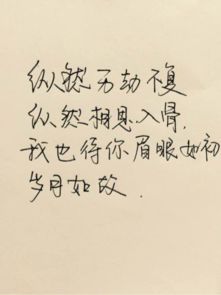 纵然万劫不复
纵然相思入骨,
我也待你眉眼如初
岁月如故.